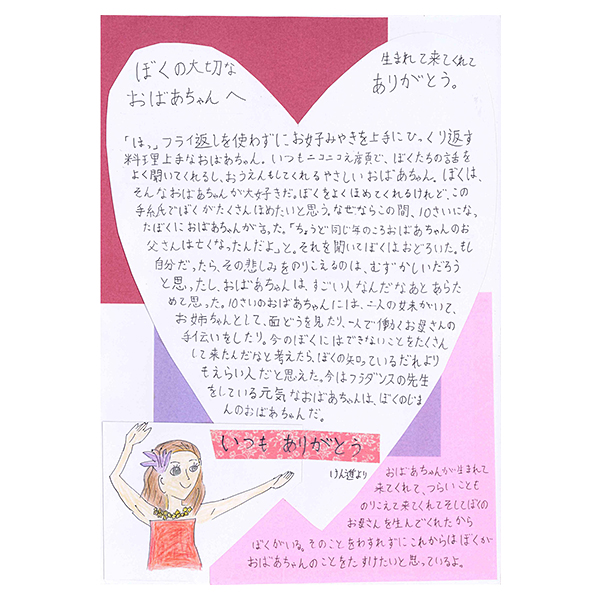 ぼくの大切な
おばあちゃんへ
生まれて来てくれて
ありがとう。
「はっ」フライ返しを使わずにお好みやきを上手にひっくり返す
料理上手なおばあちゃん。いつもニコニコえ顔で、ぼくたちの話を
よく聞いてくれるし、おうえんもしてくれるやさしいおばあちゃん。ぼくは、
そんなおばあちゃんが大好きだ。ぼくをよくほめてくれるけれど、この
手紙でぼくがたくさんほめたいと思う。なぜならこの間、10さいになっ
たぼくにおばあちゃんが言った。「ちょうど同じ年のころおばあちゃんのお
父さんは亡くなったんだよ」と。それを聞いてぼくはおどろいた。もし
自分だったら、その悲しみをのりこえるのは、むずかしいだろう
と思ったし、おばあちゃんは、すごい人なんだなあとあらた
めて思った。10さいのおばあちゃんには、二人の妹がいて、
お姉ちゃんとして、面どうを見たり、一人で働くお母さんの
手伝いをしたり。今のぼくにはできないことをたくさん
して来たんだなと考えたら、ぼくの知っているだれより
もえらい人だと思えた。今はフラダンスの先生
をしている元気なおばあちゃんは、ぼくのじま
んのおばあちゃんだ。
いつも ありがとう
けん進より
おばあちゃんが生まれて
来てくれて、つらいことも
のりこえて来てくれてそしてぼくの
お母さんを生んでくれたから
ぼくがいる。そのことをわすれずにこれからはぼくが
おばあちゃんのことをたすけたいと思っているよ。